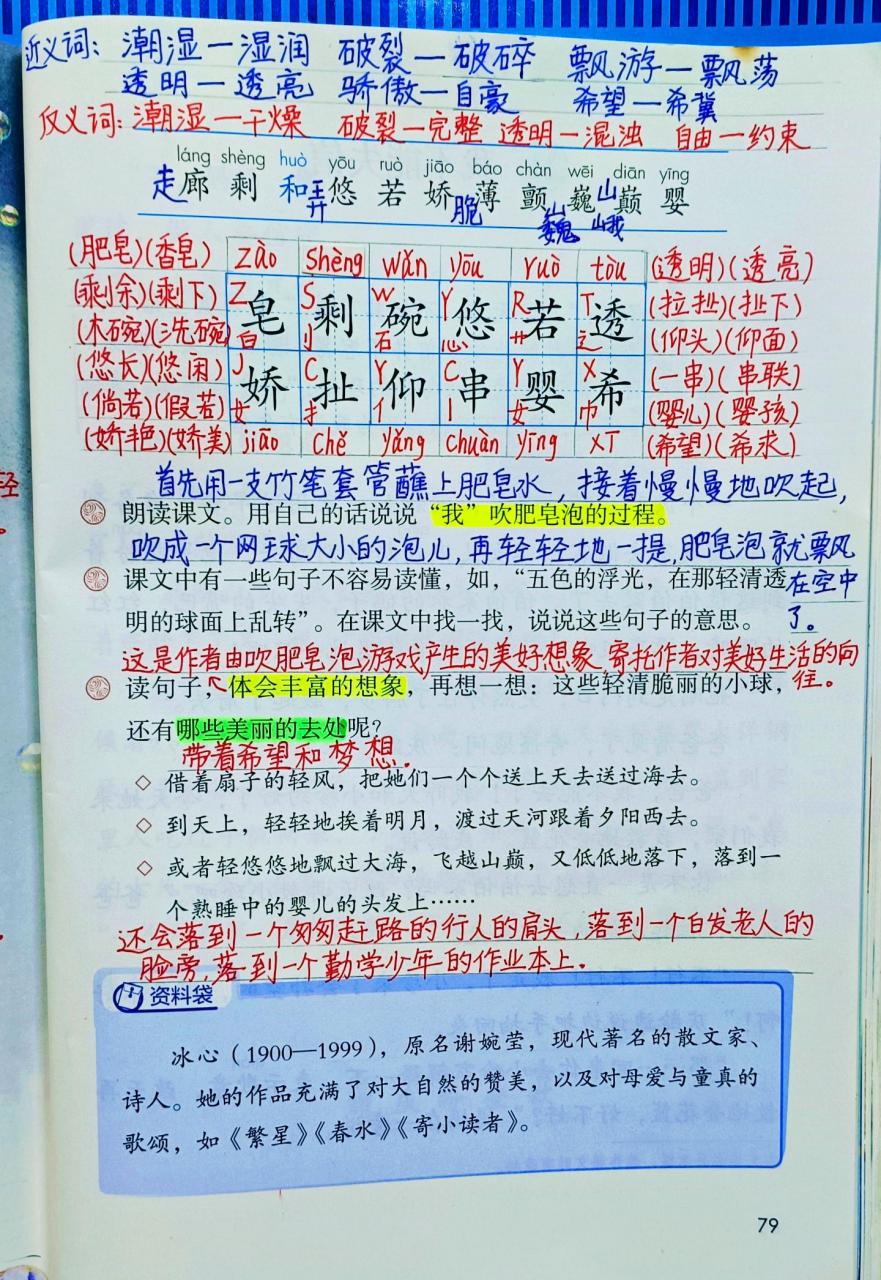 近义词：潮湿—湿润 破裂—破碎 飘游—飘荡
透明—透亮 骄傲—自豪 希望—希冀
反义词：潮湿—干燥 破裂—完整 透明—混浊 自由—约束
láng shèng huò yōu ruò jiāo báo chàn wēi diān yīng
走廊 剩 和弄 悠 若 娇 脆薄 颤 巍 山巅 婴
巍峨
(肥皂)(香皂) zào shèng wǎn yōu ruò tòu (透明)(透亮)
(剩余)(剩下) Z S W Y R T (拉扯)(扯下)
皂 剩 碗 悠 若 透
(木碗)(洗碗) 白 刂 石 心 艹 辶 (仰头)(仰面)
(悠长)(悠闲) J C Y C Y X (一串)(串联)
娇 扯 仰 串 婴 希
(倘若)(假若) 女 扌 亻 丨 女 巾 (婴儿)(婴孩)
(娇艳)(娇美) jiāo chě yǎng chuàn yīng xī (希望)(希求)
首先用一支竹笔套管蘸上肥皂水，接着慢慢地吹起，
朗读课文。用自己的话说说“我”吹肥皂泡的过程。
吹成一个网球大小的泡儿，再轻轻地一提，肥皂泡就飘风
课文中有一些句子不容易读懂，如，“五色的浮光，在那轻清透
在空中
明的球面上乱转”。在课文中找一找，说说这些句子的意思。
了。
这是作者由吹肥皂泡游戏产生的美好想象 寄托作者对美好生活的向
往。
读句子，体会丰富的想象，再想一想：这些轻清脆丽的小球，
还有哪些美丽的去处呢？
带着希望和梦想.
◇ 借着扇子的轻风，把她们一个个送上天去送过海去。
◇ 到天上，轻轻地挨着明月，渡过天河跟着夕阳西去。
◇ 或者轻悠悠地飘过大海，飞越山巅，又低低地落下，落到一
个熟睡中的婴儿的头发上……
还会落到一个匆匆赶路的行人的肩头，落到一个白发老人的
脸旁，落到一个勤学少年的作业本上.
资料袋
冰心（1900—1999），原名谢婉莹，现代著名的散文家、
诗人。她的作品充满了对大自然的赞美，以及对母爱与童真的
歌颂，如《繁星》《春水》《寄小读者》。
79